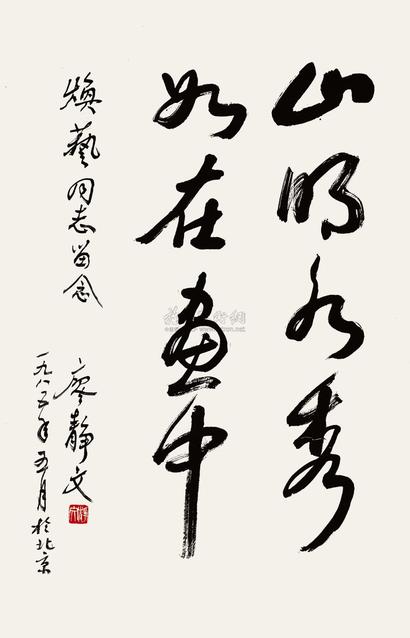 山明水秀
如在画中
焕艺同志留念
廖静文
一九八五年五月於北京